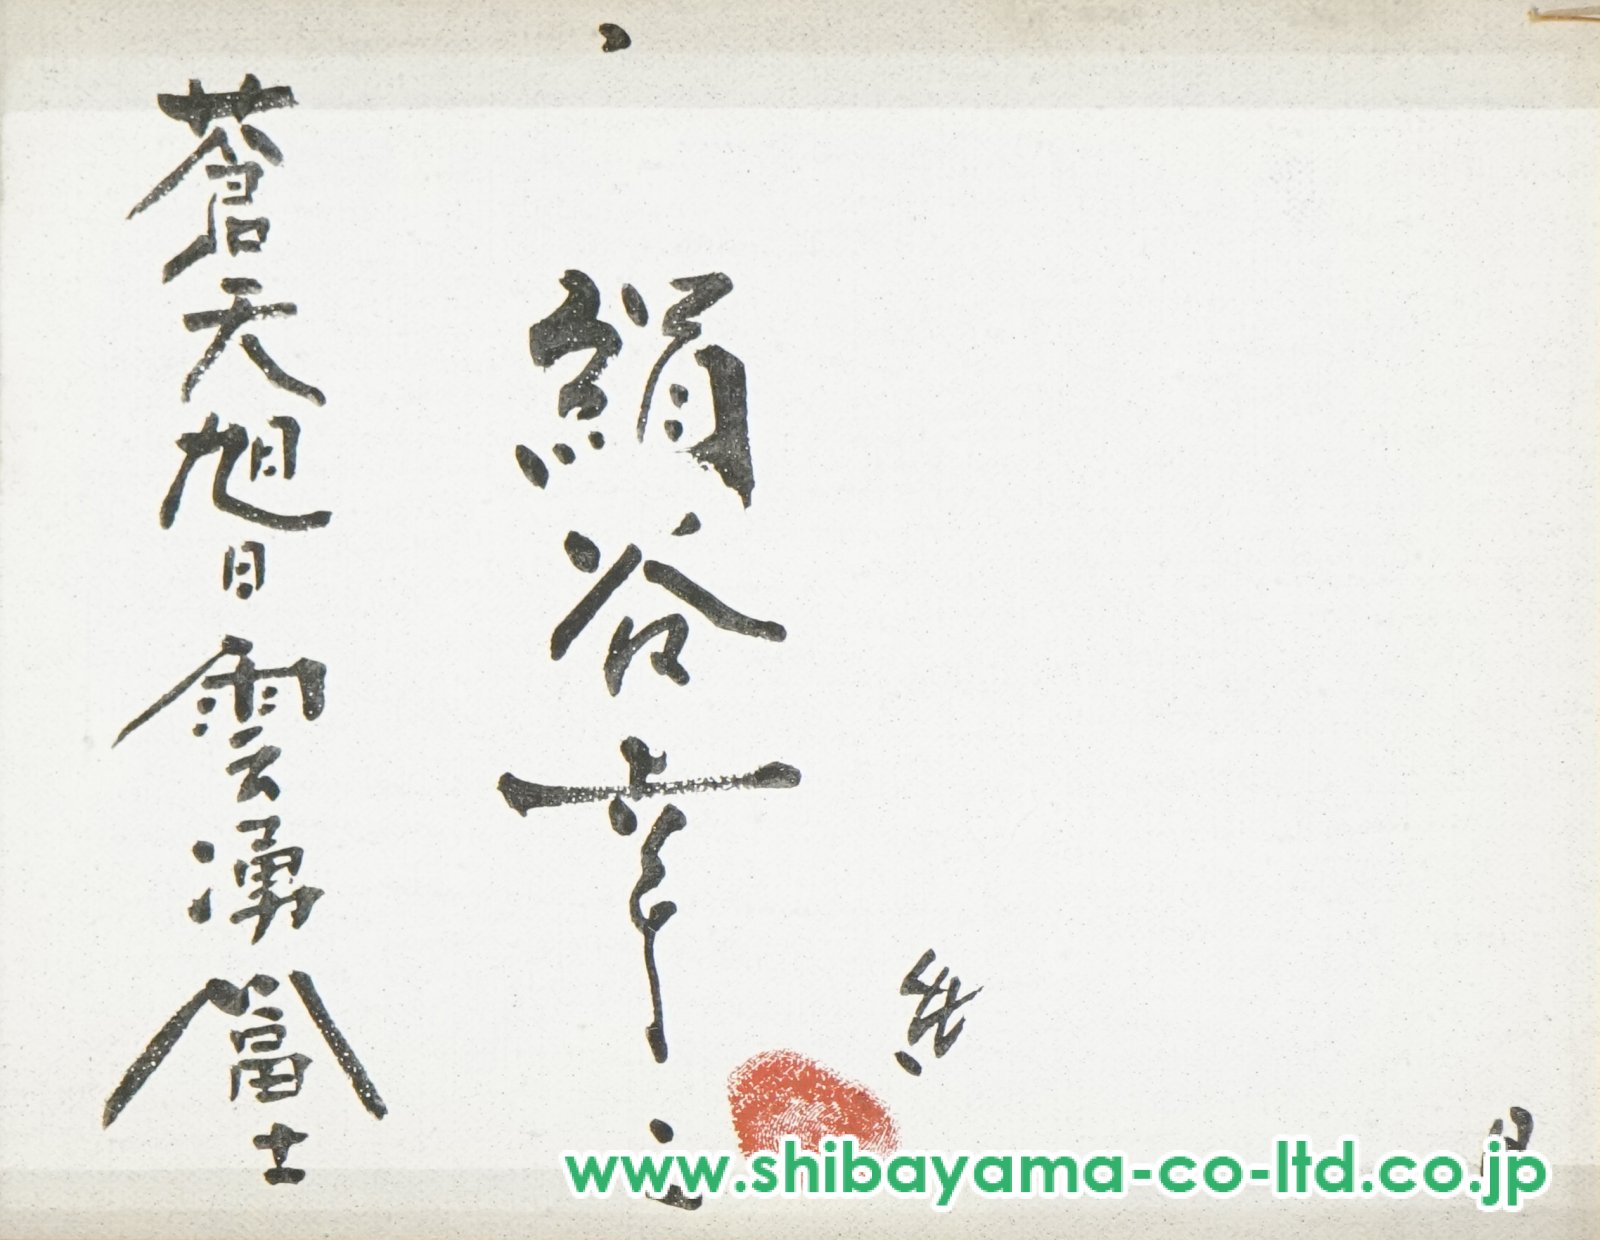 絹谷幸二
蒼天旭日雲湧富士
www.shibayama-co-ltd.co.jp